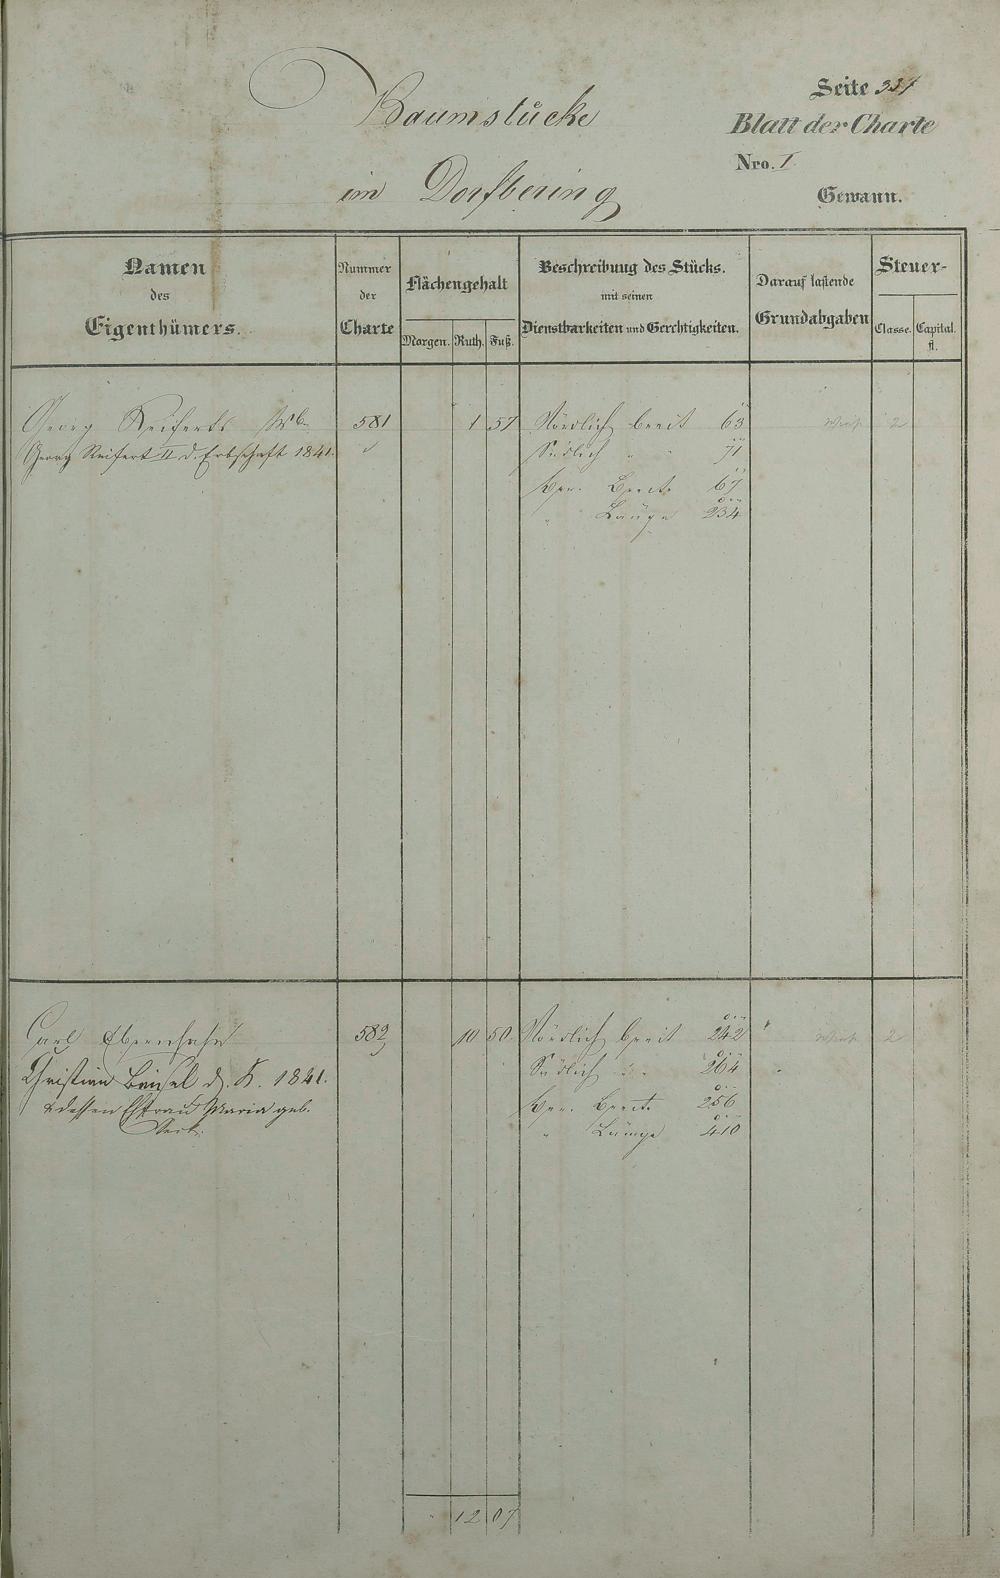 Baumstücke
im Dorfbering
Seite 331
Blatt der Charte
Nro. I
Gewann.
Namen
des
Eigenthümers.
Nummer
der
Charte
Flächengehalt
Morgen. Ruth. Fuß.
Beschreibung des Stücks.
mit seinen
Dienstbarkeiten und Gerechtigkeiten.
Darauf lastende
Grundabgaben
Steuer-
Classe. Capital.
fl.
Georg Reiferts Wb. 581 1 57 Nördlich breit 63 2
Georg Reifert II d. Erbschaft 1841. Südlich " " 71
Ver. Breite 67
" Länge 234
Carl 582 10 50 Nördlich breit 242 " 2
Christian Beisel d. K. 1841. Südlich " " 264
& dessen Ehfrau Maria geb. Ver. Breite 256
" Länge 410
12 07